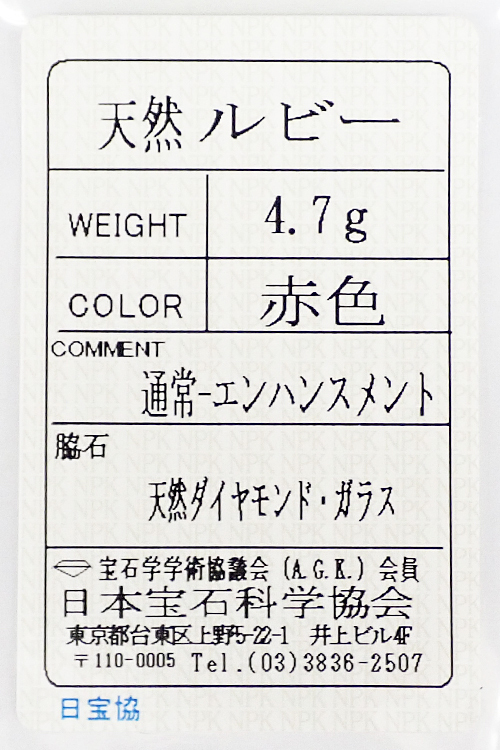 天然ルビー
WEIGHT 4.7g
COLOR 赤色
COMMENT
通常-エンハンスメント
脇石
天然ダイヤモンド・ガラス
宝石学学術協議会(A.G.K.)会員
日本宝石科学協会
東京都台東区上野5-22-1 井上ビル4F
〒110-0005 Tel.(03)3836-2507
日宝協